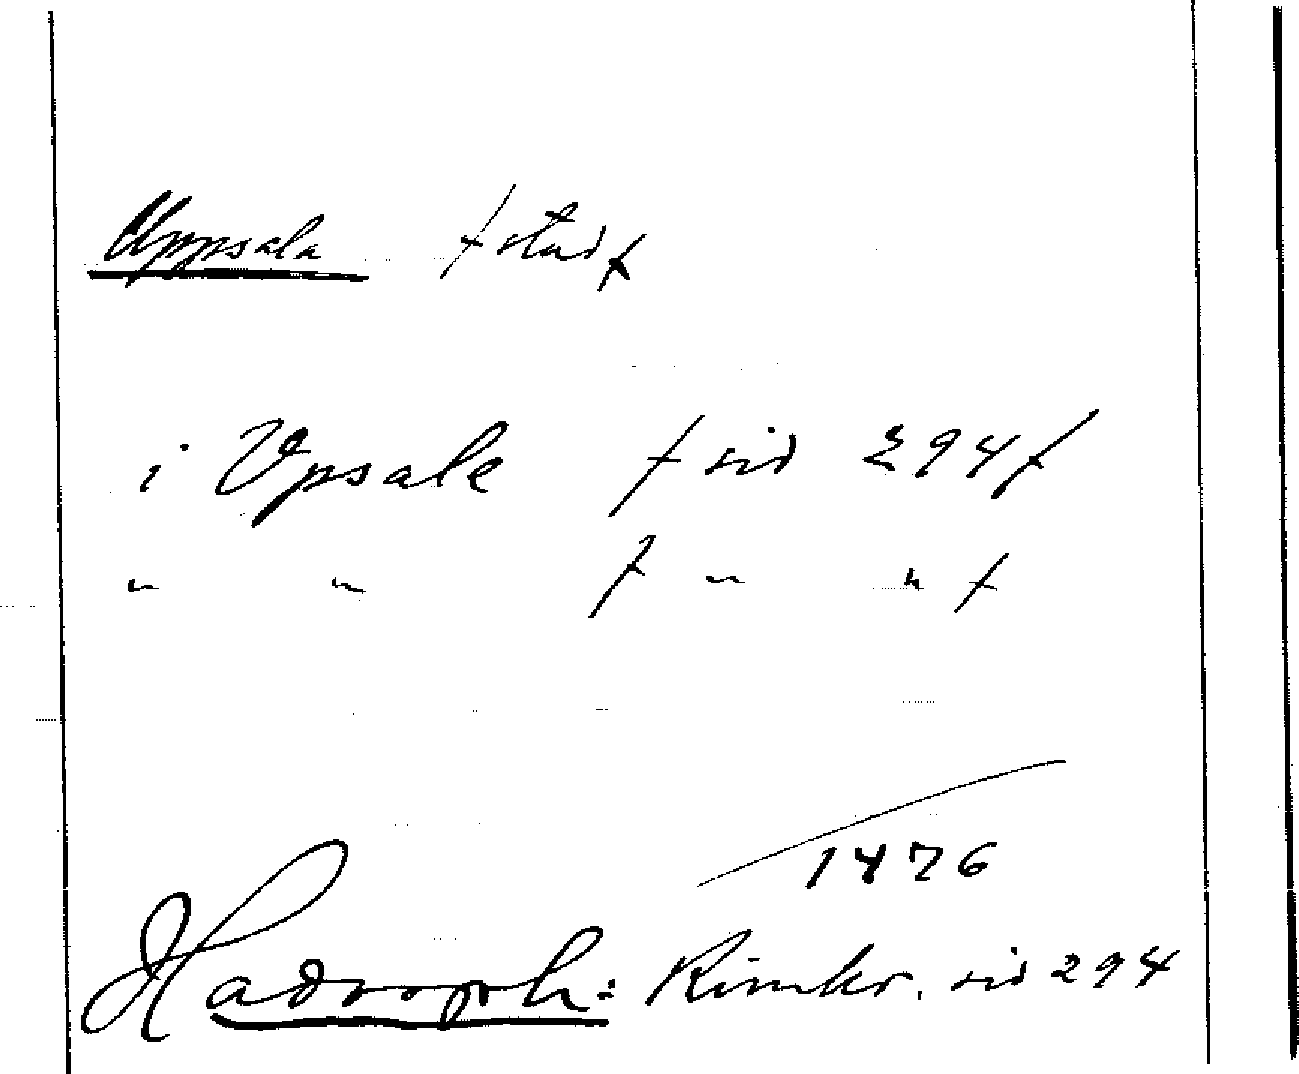 Uppsala /stad/
i Vpsale /sid 294/
" " / " " /
1476
Hadroph: Rimkr. sid 294